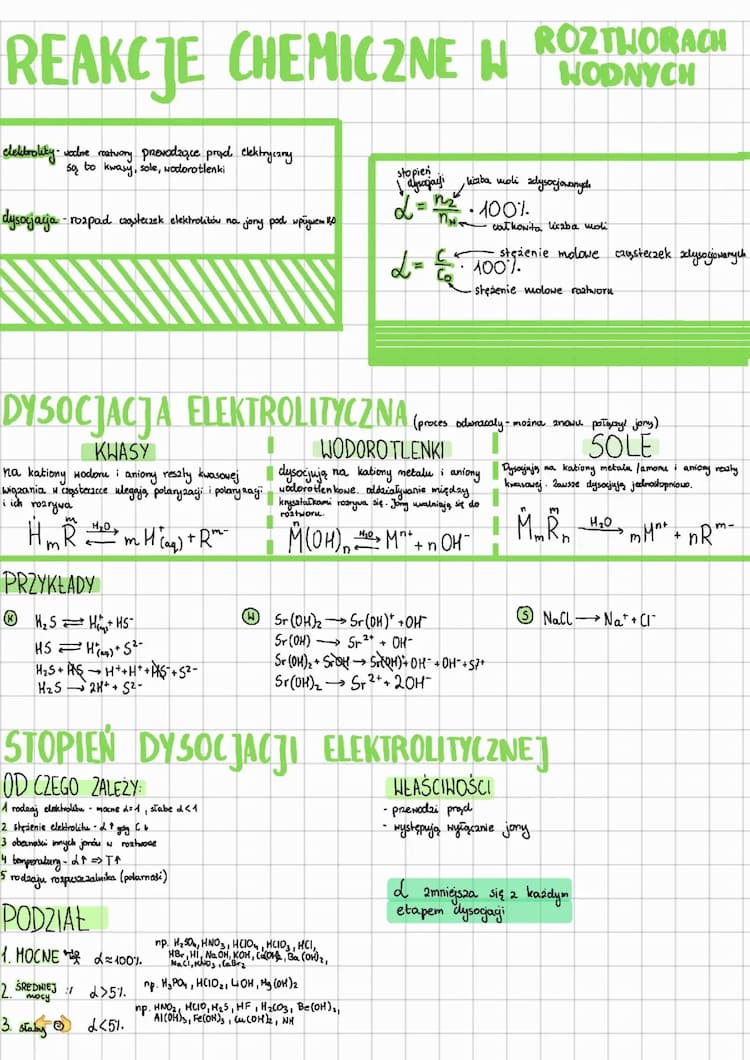 REAKCJE CHEMICZNE W ROZTWORACH WODNYCH
elektrolity - wodne roztwory przewodzące prąd elektryczny
są to kwasy, sole, wodorotlenki
dysocjacja - rozpad cząsteczek elektrolitów na jony pod wpływem H₂O
stopień dysocjacji
liczba moli zdysocjowanych
α = nz/nw · 100%
całkowita liczba moli
α = C/C₀ · 100%
stężenie molowe cząsteczek zdysocjowanych
stężenie molowe roztworu
DYSOCJACJA ELEKTROLITYCZNA (proces odwracalny - można znowu połączyć jony)
KWASY
na kationy wodoru i aniony reszty kwasowej
wiązania w cząsteczce ulegają polaryzacji i polaryzacji
i ich rozrywa
HₘR ⇌ mH⁺(aq) + Rᵐ⁻
H₂O
WODOROTLENKI
dysocjują na kationy metalu i aniony
wodorotlenkowe. oddziaływanie między
kryształkami rozrywa się. Jony uwalniają się do
roztworu
M(OH)ₙ ⇌ Mⁿ⁺ + nOH⁻
H₂O
SOLE
Dysocjują na kationy metalu/amonu i aniony reszty
kwasowej. Zawsze dysocjują jednostopniowo.
MₘRₙ → mMⁿ⁺ + nRᵐ⁻
H₂O
PRZYKŁADY
K
H₂S ⇌ H⁺(aq) + HS⁻
HS ⇌ H⁺(aq) + S²⁻
H₂S + HS → H⁺ + H⁺ + HS⁻ + S²⁻
H₂S → 2H⁺ + S²⁻
W
Sr(OH)₂ → Sr(OH)⁺ + OH⁻
Sr(OH) → Sr²⁺ + OH⁻
Sr(OH)₂ + SrOH → Sr(OH)⁺ + OH⁻ + OH⁻ + S²⁺
Sr(OH)₂ → Sr²⁺ + 2OH⁻
S
NaCl → Na⁺ + Cl⁻
STOPIEŃ DYSOCJACJI ELEKTROLITYCZNEJ
OD CZEGO ZALEŻY:
1 rodzaj elektrolitu - mocne α=1, słabe α<1
2 stężenie elektrolitu - α↑ gdy C↓
3 obecności innych jonów w roztworze
4 temperatury - α↑ ⇒ T↑
5 rodzaju rozpuszczalnika (polarność)
WŁAŚCIWOŚCI
- przewodzi prąd
- występują wyłącznie jony
α zmniejsza się z każdym
etapem dysocjacji
PODZIAŁ
1. MOCNE α≈100%
np. H₂SO₄, HNO₃, HClO₄, HClO₃, HCl,
HBr, HI, NaOH, KOH, Ca(OH)₂, Ba(OH)₂,
NaCl, KNO₃, CaBr₂
2. ŚREDNIEJ mocy α>5%
np. H₃PO₄, HClO₂, LiOH, Mg(OH)₂
3. słaby α<5%
np. HNO₂, HClO, H₂S, HF, H₂CO₃, Be(OH)₂,
Al(OH)₃, Fe(OH)₃, Cu(OH)₂, NH